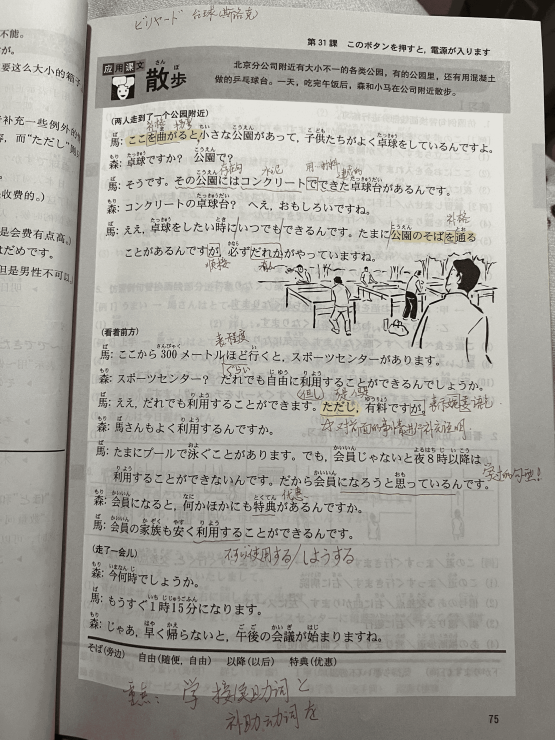 ビリヤード 台球(斯诺克)
第31課 このボタンを押すと,電源が入ります
不能。
が。
要这么大小的箱子
补充一些例外的
容,而"ただし"则
收费的。)
是会费有点高。)
はだめです。
但是男性不可以。)
応用課文
散歩
さん ぽ
北京分公司附近有大小不一的各类公园,有的公园里,还有用混凝土
做的乒乓球台。一天,吃完午饭后,森和小马在公司附近散步。
(两人走到了一个公园附近)
馬:ここを曲がると,小さな公園があって,子供たちがよく卓球をしているんですよ。
森:卓球ですか? 公園で?
水泥
馬:そうです。その公園にはコンクリートでできた卓球台があるんです。
森:コンクリートの卓球台? へえ,おもしろいですね。
馬:ええ,卓球をしたい時にいつでもできるんです。たまに公園のそばを通る
ことがあるんですが,必ずだれかがやっていますね。
(看着前方)
表程度
馬:ここから300メートルほど行くと,スポーツセンターがあります。
ぐらい
森:スポーツセンター? だれでも自由に利用することができるんでしょうか。
馬:ええ,だれでも利用することができます。ただし,有料ですが。
森:馬さんもよく利用するんですか。
馬:たまにプールで泳ぐことがあります。でも,会員じゃないと夜8時以降は
利用することができないんです。だから会員になろうと思っているんです。
优惠
森:会員になると,何かほかにも特典があるんですか。
馬:会員の家族も安く利用することができるんです。
(走了一会儿)
森:今何時でしょうか。
馬:もうすぐ1時15分になります。
森:じゃあ,早く帰らないと,午後の会議が始まりますね。
そば(旁边) 自由(随便,自由) 以降(以后) 特典(优惠)
重点: 学 接续助词 と
补助动词 を
75